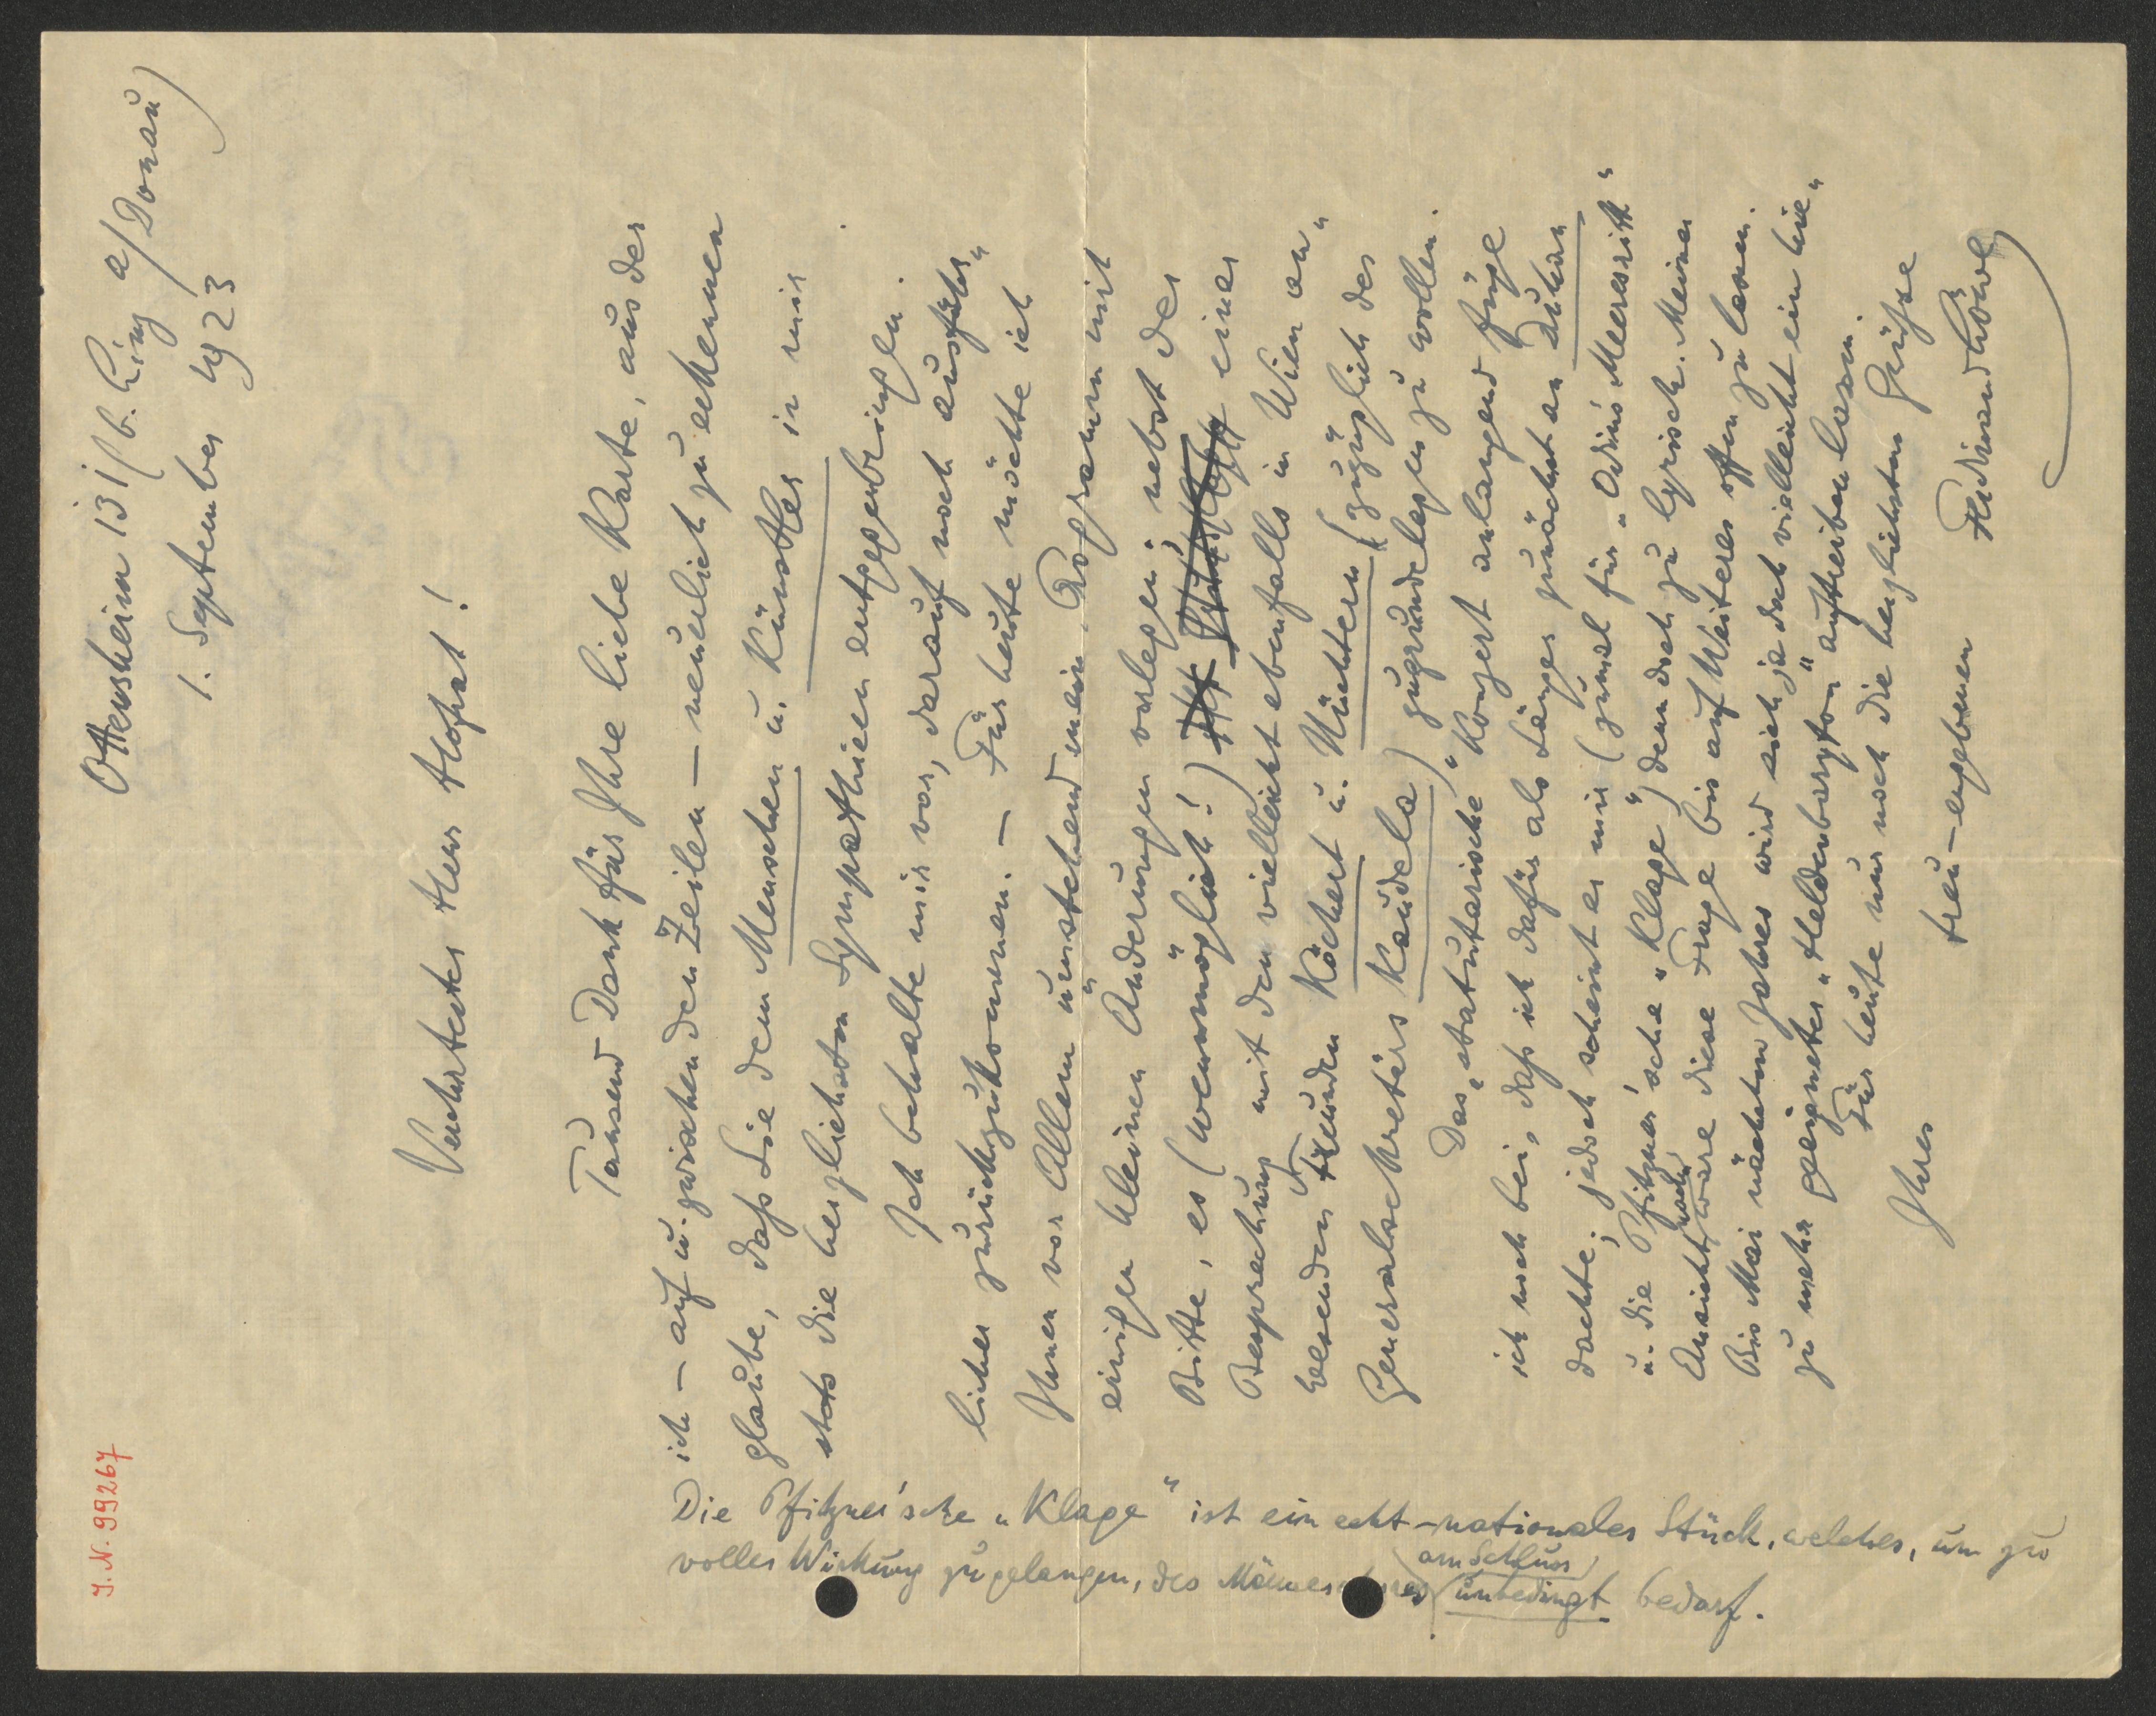 Ottensheim 131 (b. Linz a/Donau)
1. September 1923
Verehrtester Herr Hofrat!
Tausend Dank für Ihre liebe Karte, aus der
ich – auf u. zwischen den Zeilen – neuerlich zu erkennen
glaube, daß Sie dem Menschen u. Künstler in mir
stets die herzlichsten Sympathien entgegenbringen.
Ich behalte mir vor, darauf noch „ausführ-
licher“ zurückzukommen. – Für heute möchte ich
Ihnen vor Allem „umstehend“ mein Programm mit
einigen kleinen Änderungen vorlegen; nebst der
Bitte, es (wenn möglich!) einer
Besprechung mit den vielleicht ebenfalls in Wien „an-
wesenden“ Freunden Köchert u. Nüchtern (zuzüglich des
Generalsekretärs Kaudela) zugrundelegen zu wollen.
Das „statutarische“ Konzert anlangend füge
ich noch bei, daß ich dafür als Sänger zunächst an Duhan
dachte; jedoch scheint er mir (zumal für „Odins Meeresritt“
u. die Pfitzner'sche „Klage“) denn doch zu lyrisch. Meiner
Ansicht nach wäre diese Frage bis auf Weiteres offen zu lassen.
Bis Mai nächsten Jahres wird sich ja doch vielleicht ein „hie-
zu mehr geeigneter „Heldenbaryton“ auftreiben lassen.
Für heute nur noch die herzlichsten Grüße
Ihres treu-ergebenen Ferdinand Löwe
Die Pfitzner'sche „Klage“ ist ein echt-nationales Stück, welches, um zu
voller Wirkung zu gelangen, des Männerchores am Schluss unbedingt bedarf.
I.N. 99267